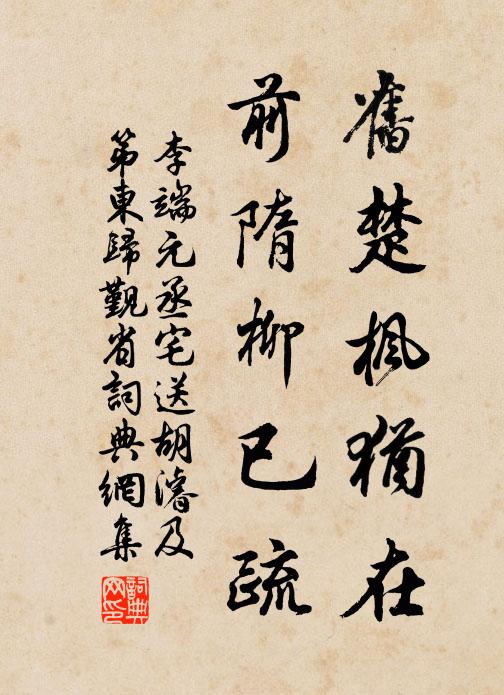 舊楚楓猶在
前隋柳已疏
李端元丞宅送胡濬及
第東歸覲省詞典網集
詞典網印